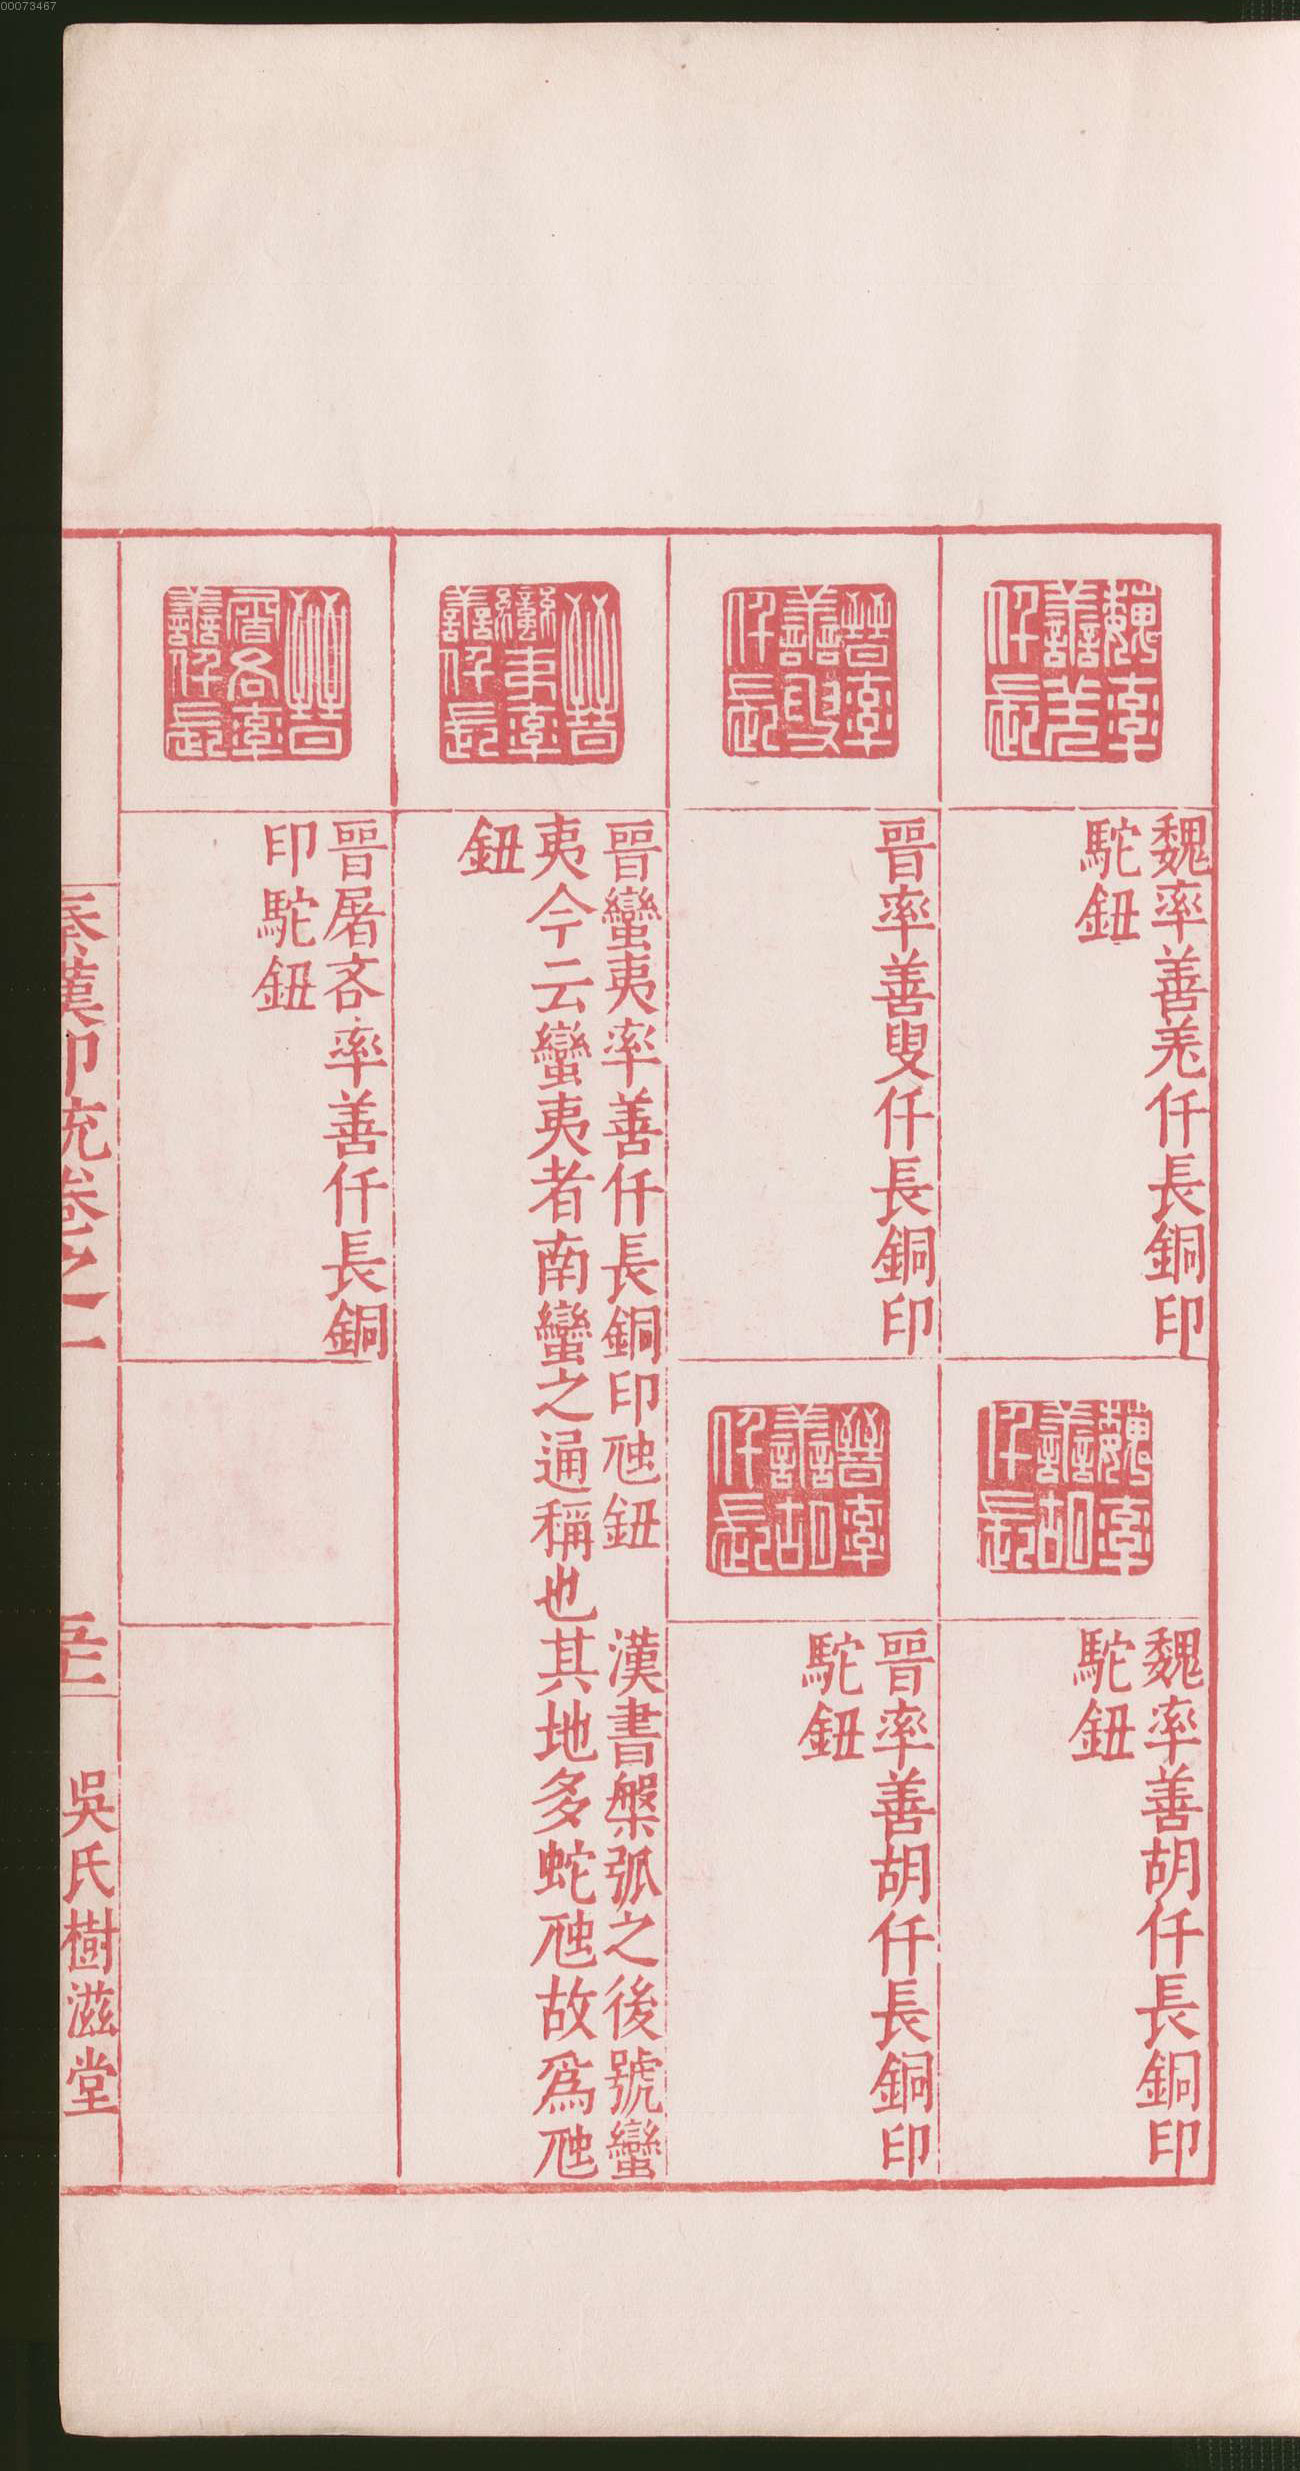 00073467
魏率善羌仟長
魏率善羌仟長銅印
駝鈕
魏率善胡仟長
魏率善胡仟長銅印
駝鈕
晉率善叟仟長
晉率善叟仟長銅印
晉率善胡仟長
晉率善胡仟長銅印
駝鈕
晉蠻夷率善仟長
晉蠻夷率善仟長銅印虵鈕 漢書槃弧之後號蠻
夷今云蠻夷者南蠻之通稱也其地多蛇虵故爲虵
鈕
晉屠各率善仟長
晉屠吝率善仟長銅
印駝鈕
秦漢印統卷之一
吳氏樹滋堂